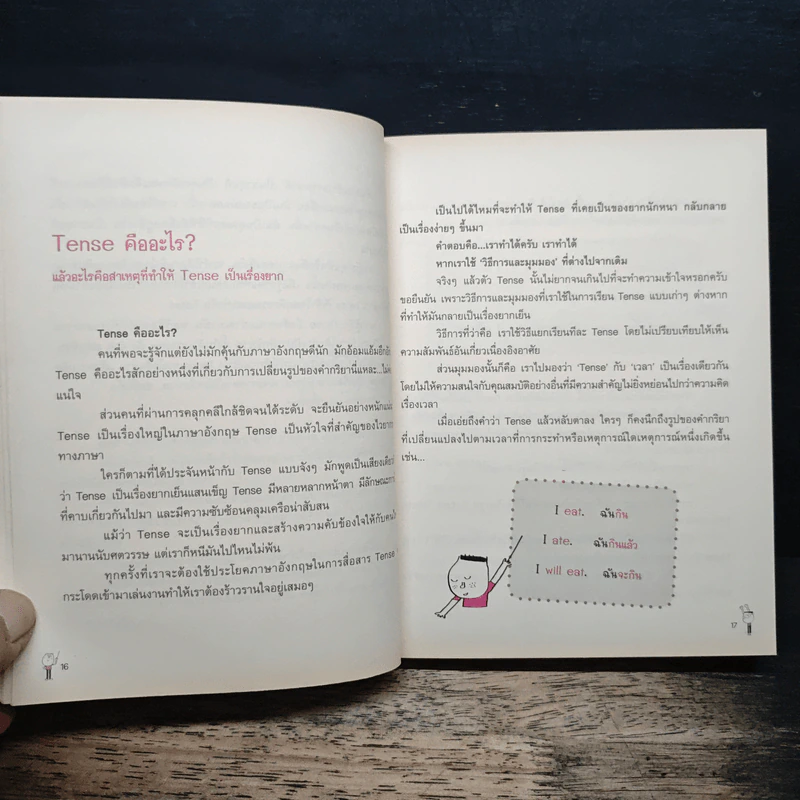 Tense คืออะไร?
แล้วอะไรคือสาเหตุที่ทำให้ Tense เป็นเรื่องยาก
Tense คืออะไร?
คนที่พอจะรู้จักแต่ยังไม่มักคุ้นกับภาษาอังกฤษดีนัก มักอ้อมแอ้มอีกอัก
Tense คืออะไรสักอย่างหนึ่งที่เกี่ยวกับการเปลี่ยนรูปของคำกริยานี่แหละ...
แน่ใจ
ส่วนคนที่ผ่านการคลุกคลีใกล้ชิดจนได้ระดับ จะยืนยันอย่างหนักแน่น
Tense เป็นเรื่องใหญ่ในภาษาอังกฤษ Tense เป็นหัวใจที่สำคัญของไวยากรณ์
ทางภาษา
ใครก็ตามที่ได้ประจันหน้ากับ Tense แบบจังๆ มักพูดเป็นเสียงเดียว
ว่า Tense เป็นเรื่องยากเย็นแสนเข็ญ Tense มีหลายหลากหน้าตา มีลักษณะ
ที่คาบเกี่ยวกันไปมา และมีความซับซ้อนคลุมเครือน่าสับสน
แม้ว่า Tense จะเป็นเรื่องยากและสร้างความคับข้องใจให้กับ
มานานนับศตวรรษ แต่เราก็หนีมันไปไหนไม่พ้น
ทุกครั้งที่เราจะต้องใช้ประโยคภาษาอังกฤษในการสื่อสาร Tense
กระโดดเข้ามาเล่นงานทำให้เราต้องร้าวรานใจอยู่เสมอๆ
16
เป็นไปได้ไหมที่จะทำให้ Tense ที่เคยเป็นของยากนักหนา กลับกลาย
เป็นเรื่องง่ายๆ ขึ้นมา
คำตอบคือ...เราทำได้ครับ เราทำได้
หากเราใช้ 'วิธีการและมุมมอง' ที่ต่างไปจากเดิม
จริงๆ แล้วตัว Tense นั้นไม่ยากจนเกินไปที่จะทำความเข้าใจหรอกครับ
ขอยืนยัน เพราะวิธีการและมุมมองที่เราใช้ในการเรียน Tense แบบเก่าๆ ต่างหาก
ที่ทำให้มันกลายเป็นเรื่องยากเย็น
วิธีการที่ว่าคือ เราใช้วิธีแยกเรียนทีละ Tense โดยไม่เปรียบเทียบให้เห็น
ความสัมพันธ์อันเกี่ยวเนื่องอิงอาศัย
ส่วนมุมมองนั้นก็คือ เราไปมองว่า 'Tense' กับ 'เวลา' เป็นเรื่องเดียวกัน
โดยไม่ให้ความสนใจกับคุณสมบัติอย่างอื่นที่มีความสำคัญไม่ยิ่งหย่อนไปกว่าความคิด
เรื่องเวลา
เมื่อเอ่ยถึงคำว่า Tense เราแล้วหลับตาลง ใครๆ ก็คงนึกถึงรูปของคำกริยา
ที่เปลี่ยนแปลงไปตามเวลาที่การกระทำหรือเหตุการณ์ใดเหตุการณ์หนึ่งเกิดขึ้น
เช่น...
I eat. ฉันกิน
I ate. ฉันกินแล้ว
I will eat. ฉันจะกิน
17